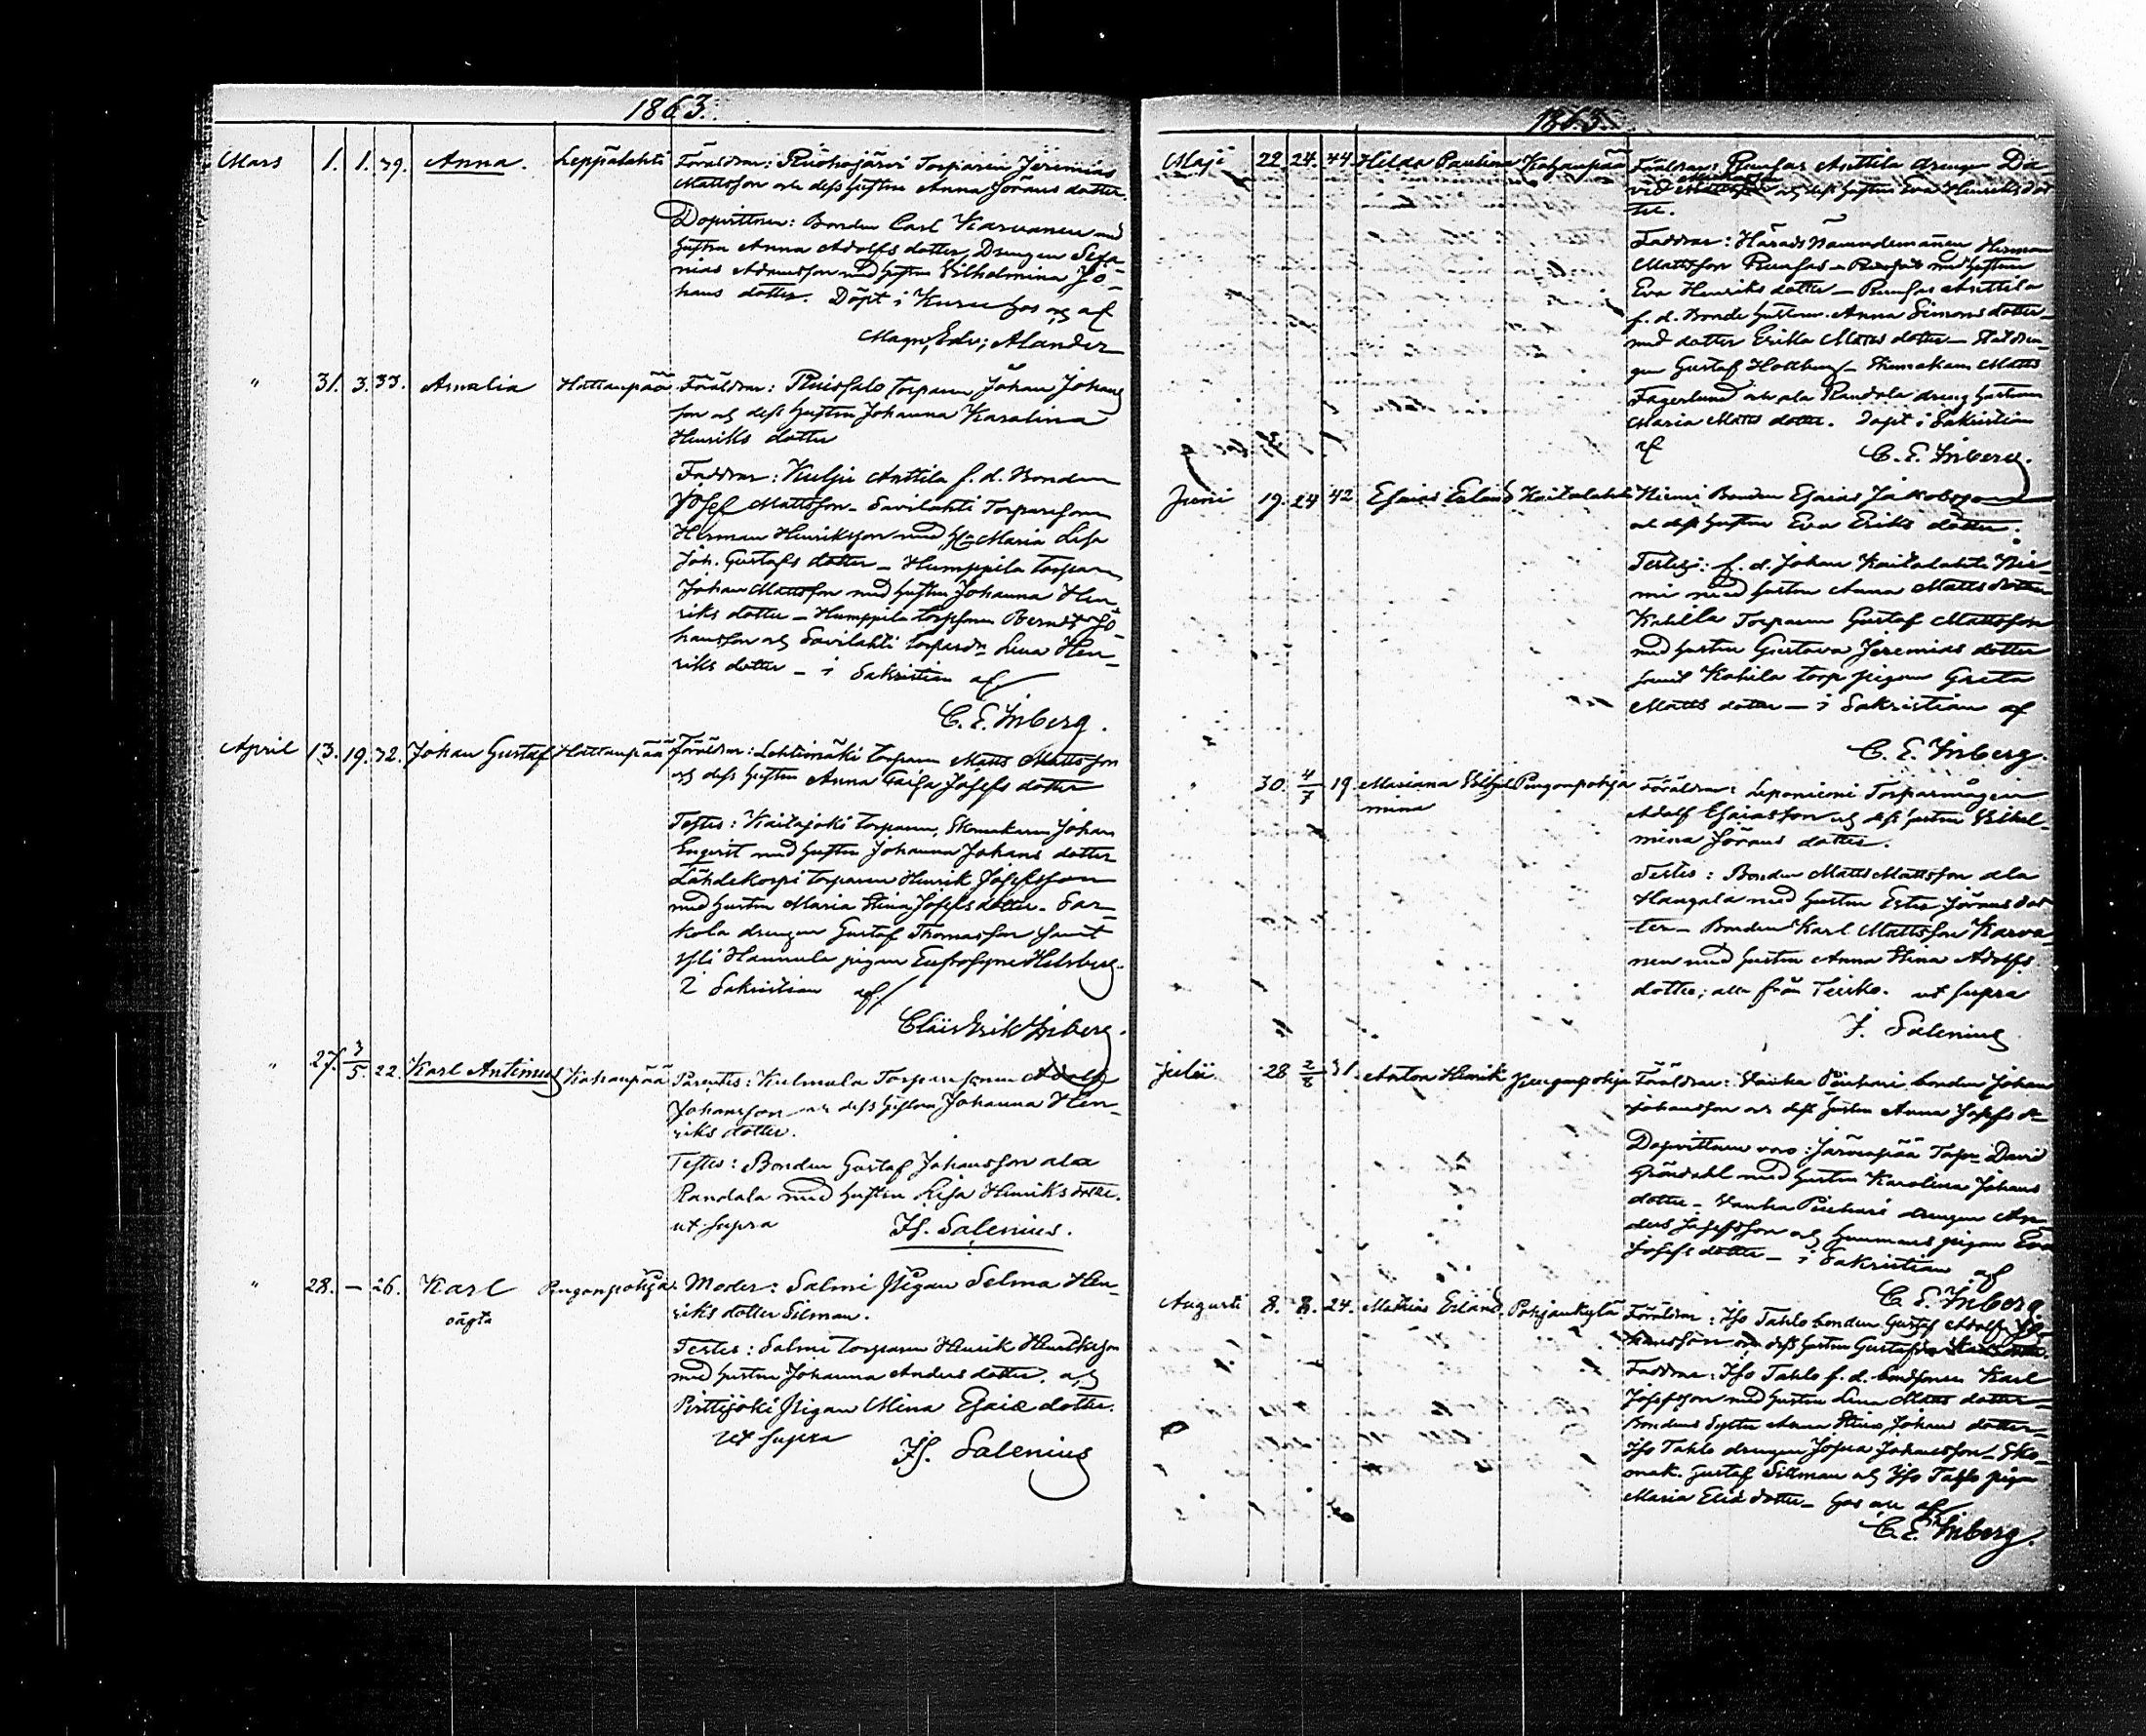 1863.
Mars 1. 1. 39. Anna. Leppälahti Föräldrar: Ruohojärvi Torparen Jeremias
Mattsson och dess hustru Anna Jörans dotter.
Dopvittnen: Bonden Carl Karvanen med
hustru Anna Adolfs dotter, Drengen Sefa-
nias Adamsson med hustru Wilhelmina Jo-
hans dotter. Döpt i Kuru hos och af
Magn; Edv; Alander
" 31. 3. 33. Amalia Hattanpää Föräldrar: Ruissalo torparen Johan Johans
son och dess hustru Johanna Karolina
Henriks dotter
Faddrar: Kulju Anttila f. d. Bonden
Josef Mattsson - Savilahti Torparesonen
Herman Henriksson med Hu Maria Lisa
Joh. Gustafs dotter - Humppila torparen
Johan Mattsson med hustru Johanna Hen
riks dotter - Humppila torpsonen Berndt Jo-
hansson och Savilahti torpardn Lena Hen-
riks dotter - i Sakristian af
C. E. Inberg.
April 13. 19. 32. Johan Gustaf Hattanpää Föräldrar: Lehtimäki torparen Matts Mattsson
och dess hustru Anna Caisa Josefs dotter
Testes: Kaitajoki torparen, Skomakaren Johan
Engvist med hustru Johanna Johans dotter
Lähdekorpi torparen Henrik Josefsson
med hustru Maria Stina Josefs dotter. Sar-
kola drengen Gustaf Thomasson samt
Yli Hannula pigan Eufrosyne Helsberg.
I Sakristian af
Claës Erik Inberg.
" 27. 3/5. 22. Karl Antinus Kahanpää Parentes: Kulmala Torparesonen Adolf
Johansson och dess hustru Johanna Hen-
riks dotter.
Testes: Bonden Gustaf Johansson ala
Randala med hustru Lisa Henriks dotter.
ut supra Fr. Salenius.
" 28. — 26. Karl Pengonpohja Moder: Salmi Pigan Selma Hen-
oägta riks dotter Silman.
Testes: Salmi torparen Henrik Henriksson
med hustru Johanna Anders dotter. och
Pirttijoki Pigan Mina Esaiæ dotter.
ut supra Fr. Salenius
1863.
Maji 22 24. 44. Hilda Paulina Kahanpää Föräldrar: Runsas Anttila drengen Da-
vid och dess hustru Eva Henriks dot
ter.
Faddrar: Härads Nämndemannen Herman
Mattsson Runsas med hustru
Eva Henriks dotter - Runsas Anttila
f. d. Bonde hustrun Anna Simons dotter
med dotter Erika Matts dotter - Statdren-
gen Gustaf Hollberg - Skomakaren Matts
Fagerlund och ala Randala dreng hustrun
Maria Matts dotter. Döpt i Sakristian
af C. E. Inberg.
Juni 19. 24 42 Esaias Erland Kaitalahti Niemi Bonden Esaias Jakobsson
och dess hustru Eva Eriks dotter.
Testes: f. d. Johan Kaitalahti Nie-
mi med hustru Anna Matts dotter
Kahila Torparen Gustaf Mattsson
med hustru Gustava Jeremias dotter
samt Kahila torp pigan Greta
Matts dotter - i Sakristian af
C. E. Inberg.
" 30. 4/7 19 Mariana Vilhel Pengonpohja Föräldrar: Leponiemi Torparmågen
mina Adolf Esaiasson och dess hustru Vilhel-
mina Jörans dotter.
Testes: Bonden Matts Mattsson ala
Haugala med hustru Ester Jörans dot
ter - Bonden Karl Mattsson Karva-
nen med hustru Anna Stina Adolfs
dotter; alla från Teisko. ut supra
F. Salenius
Julii 28 2/8 31. Anton Henrik Pengonpohja Föräldrar: Vanha Pinhari bonden Johan
Johansson och dess hustru Anna Josefs dr
Dopvittnen voro: Järvenpää Torp. David
Gröndahl med hustru Karolina Johans
dotter - Vanha Pinhari drengen An-
ders Josefsson och pigan Eva
Josefs dotter - i Sakristian af
C. E. Inberg
Augusti 8. 8. 24. Mathias Erland Pohjankylä Föräldrar: Iso Tahlo bonden Gustaf Adolf Jo-
hansson och dess hustru Gustafva
Faddrar: Iso Tahlo f. d. bonden Karl
Josefsson med hustru Lena Matts dotter
Bondens Syster Anna Stina Johans dotter
Iso Tahlo drengen Josua Johansson - Sko-
mak. Gustaf Sillman och Iso Tahlo pigan
Maria Eliæ dotter - hos och af
C. E. Inberg.